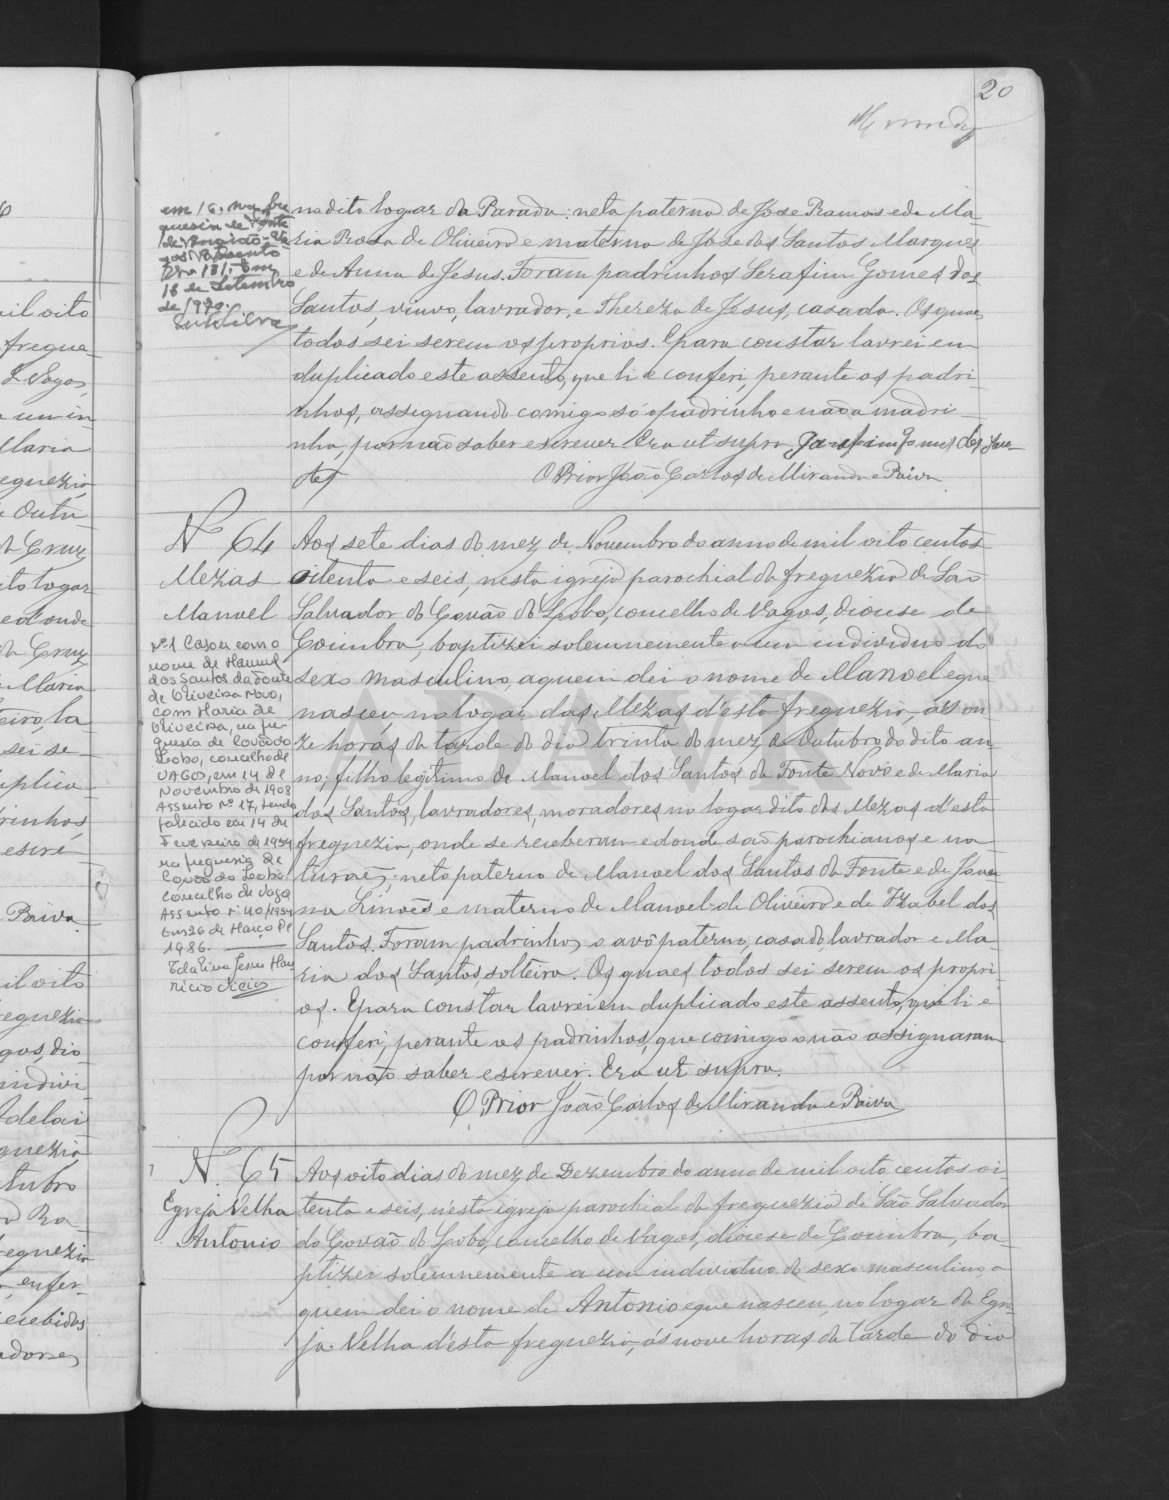 20
Miranda
em 16, na fre
guesia de Fonte
de
Nro 181. Em
16 de Setembro
de 1970.
no dito logar da Parada: neta paterna de José Ramos e de Ma-
ria Rosa de Oliveira e materna de José dos Santos Marques
e de Anna de Jesus. Foram padrinhos Serafim Gomes dos
Santos, viuvo, lavrador, e Thereza de Jesus, casada. Os quaes
todos sei serem os proprios. E para constar lavrei em
duplicado este assento, que li e conferi, perante os padri-
nhos, assignando comigo só o padrinho e não a madri-
nha, por não saber escrever. Era ut supra. Sarafim Gomes dos San-
tos
O Prior João Carlos de Miranda e Paiva
Nº 64
Mezas
Manoel
Aos sete dias do mez de Novembro do anno de mil oito centos
oitenta e seis, nesta igreja parochial da freguezia de São
Salvador do Covão do Lobo, concelho de Vagos, diocese de
Coimbra, baptizei solemnemente a um individuo do
sexo masculino, a quem dei o nome de Manoel e que
nasceu no logar das Mezas d'esta freguezia, ás on-
ze horas da tarde do dia trinta do mez de Outubro do dito an-
no; filho legitimo de Manoel dos Santos da Fonte Novo e de Maria
dos Santos, lavradores, moradores no logar dito das Mezas d'esta
freguezia, onde se receberam e donde são parochianos e na
turaes; neto paterno de Manoel dos Santos da Fonte e de Joan
na Simões e materno de Manoel de Oliveira e de Izabel dos
Santos. Foram padrinhos o avô paterno, casado, lavrador e Ma-
ria dos Santos, solteira. Os quaes todos sei serem os propri-
os. E para constar lavrei em duplicado este assento, que li e
conferi, perante os padrinhos, que comigo o não assignaram
por não saber escrever. Era ut supra.
O Prior João Carlos de Miranda e Paiva
Nº1 Casou com o
nome de Manuel
dos Santos da Fonte
de Oliveira Novo,
com Maria de
Oliveira, na fre
guesia de Covão do
Lobo, concelho de
VAGOS, em 14 de
Novembro de 1908
Assento Nº 17, tendo
falecido em 14 de
Fevereiro de 1954
na freguesia de
Covão do Lobo
Concelho de Vagos
Assento nº 40/1954
Em 26 de Março de
1986.
Edalina Jesus Mau
ricio
N. 65
Egreja Velha
Antonio
Aos oito dias do mez de Dezembro do anno de mil oito centos oi-
tenta e seis, n'esta igreja parochial da freguezia de São Salvador
do Covão do Lobo, concelho de Vagos, diocese de Coimbra, ba-
ptizei solemnemente a um individuo do sexo masculino, a
quem dei o nome de Antonio e que nasceu no logar da Egre-
ja Velha d'esta freguezia, ás nove horas da tarde do dia
ADAVR